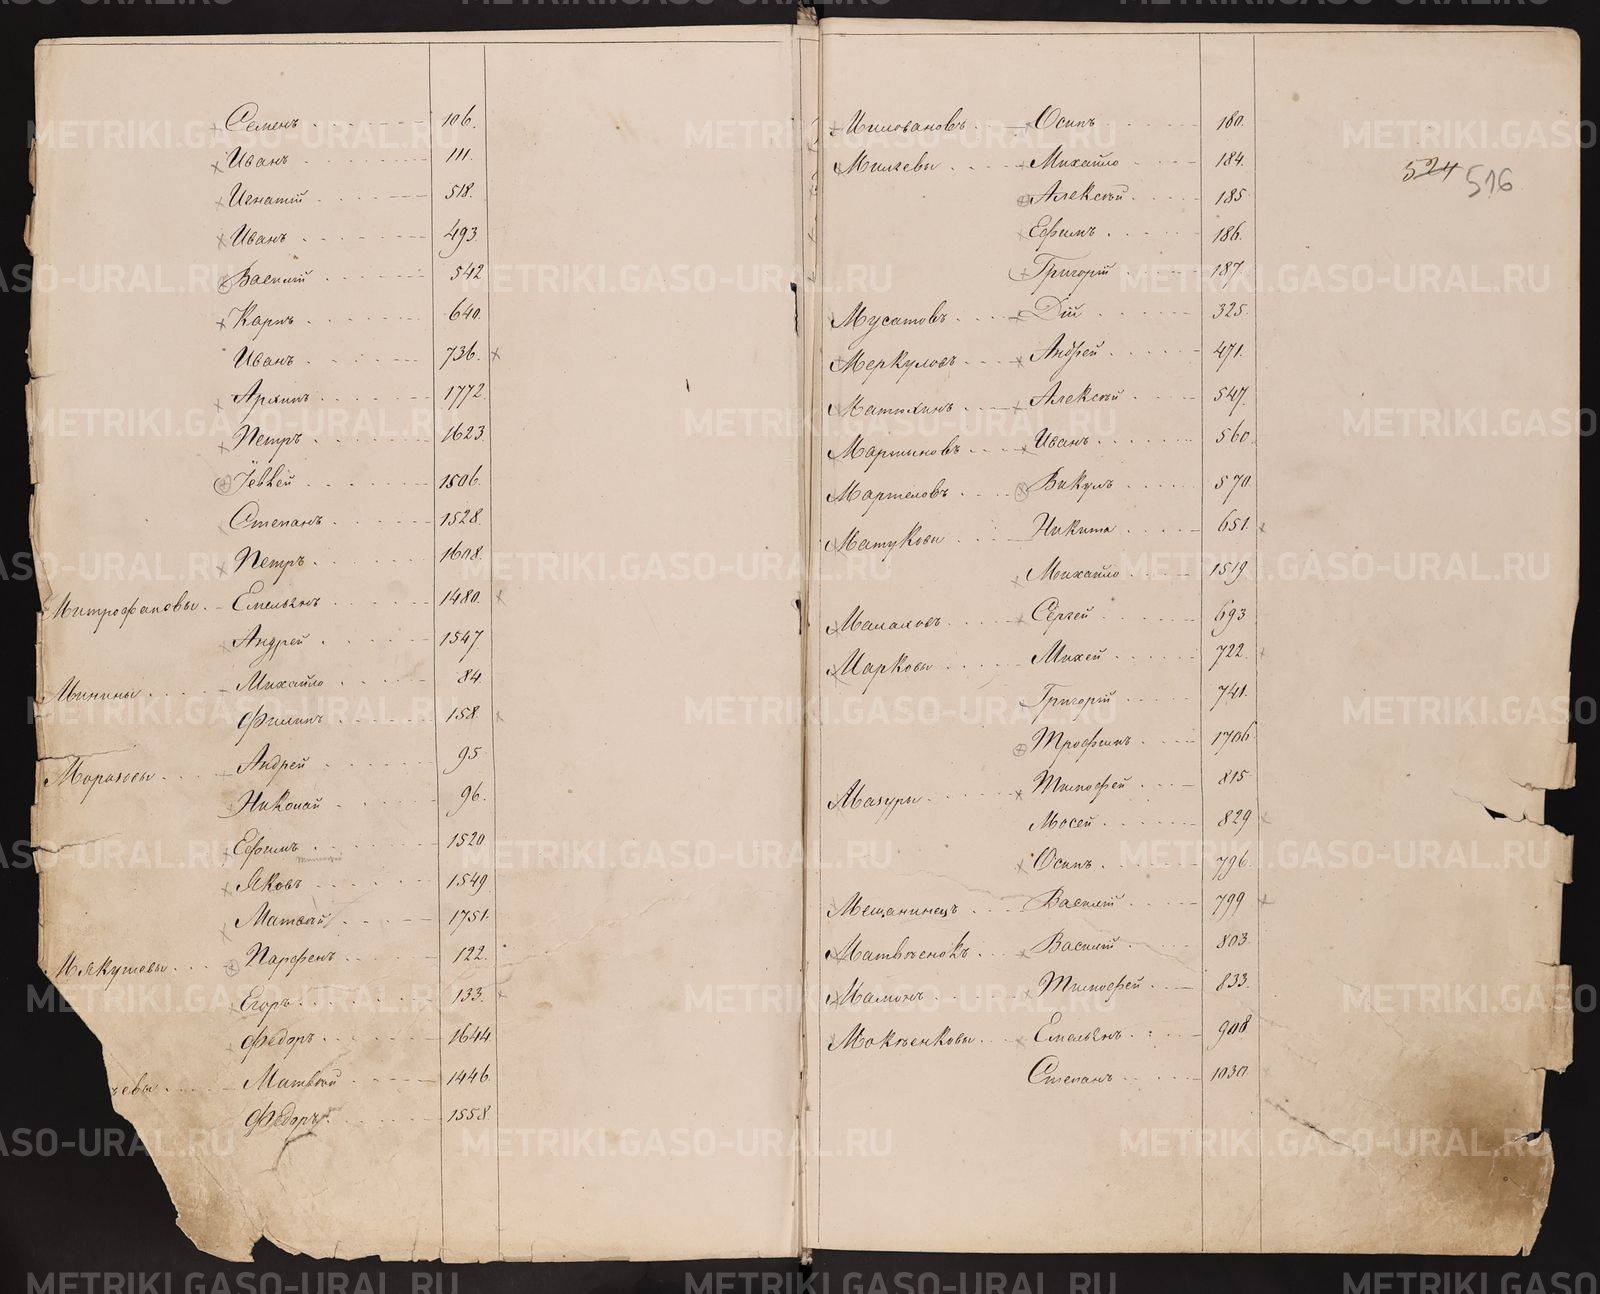 Семенъ 106.
Иванъ 111.
Игнатій 518.
Иванъ 493.
Василій 542
Карпъ 640.
Иванъ 736.
Архипъ 1772.
Петръ 1623.
Іевлей 1506.
Степанъ 1528.
Петръ 1608.
Митрофановы Емельянъ 1480.
Андрей 1547.
Минины Михайло 84.
Филипъ 158.
Андрей 95
Николай 96.
Ефимъ 1520
Яковъ 1549
Матвѣй 1751.
Мякутовы Парфенъ 122.
Егоръ 133.
Федоръ 1644.
Матвѣй 1446.
Федоръ 1558.
524 516
Миловановъ Осипъ 180.
Михайло 184.
Алексѣй 185.
Ефимъ 186.
Григорій 187.
Мусатовъ Дій 325.
Меркуловъ Андрей 471.
Матюхинъ Алексѣй 547.
Мартыновъ Иванъ 560.
Мартеловъ Викулъ 570
Матуковы Никита 651.
Михайло 1519
Малаховъ Сергей 693
Марковы Михей 722.
Григорій 741.
Трофимъ 1706
Мазуры Тимофей 815
Мосей 829
Осипъ 796.
Мещанинецъ Василій 799
Матвѣенокъ Василій 803
Мамонъ Тимофей 833.
Мокѣенковы Емельянъ 908
Степанъ 1030.
METRIKI.GASO-URAL.RU